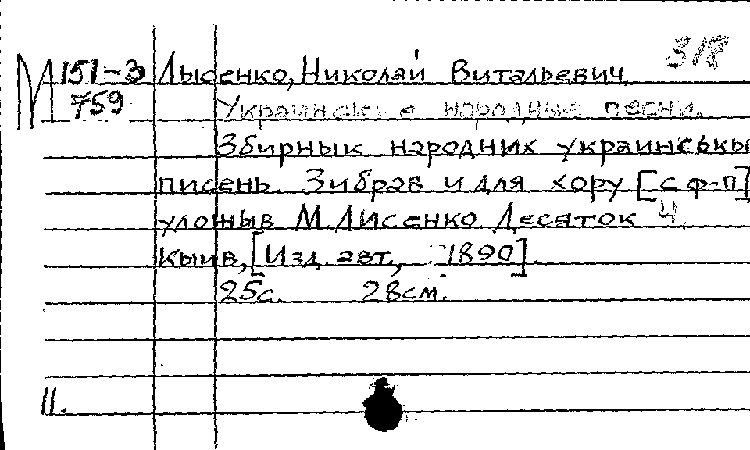 318
М 151-3 Лысенко, Николай Витальевич.
759 Украинские народные песни.
Збирнык народних украинськы
писень. Зибрав и для хору [с ф-п]
уложыв М. Лисенко. Десяток 4.
Кыив, [Изд. авт., 1890].
25с. 28см.
11.